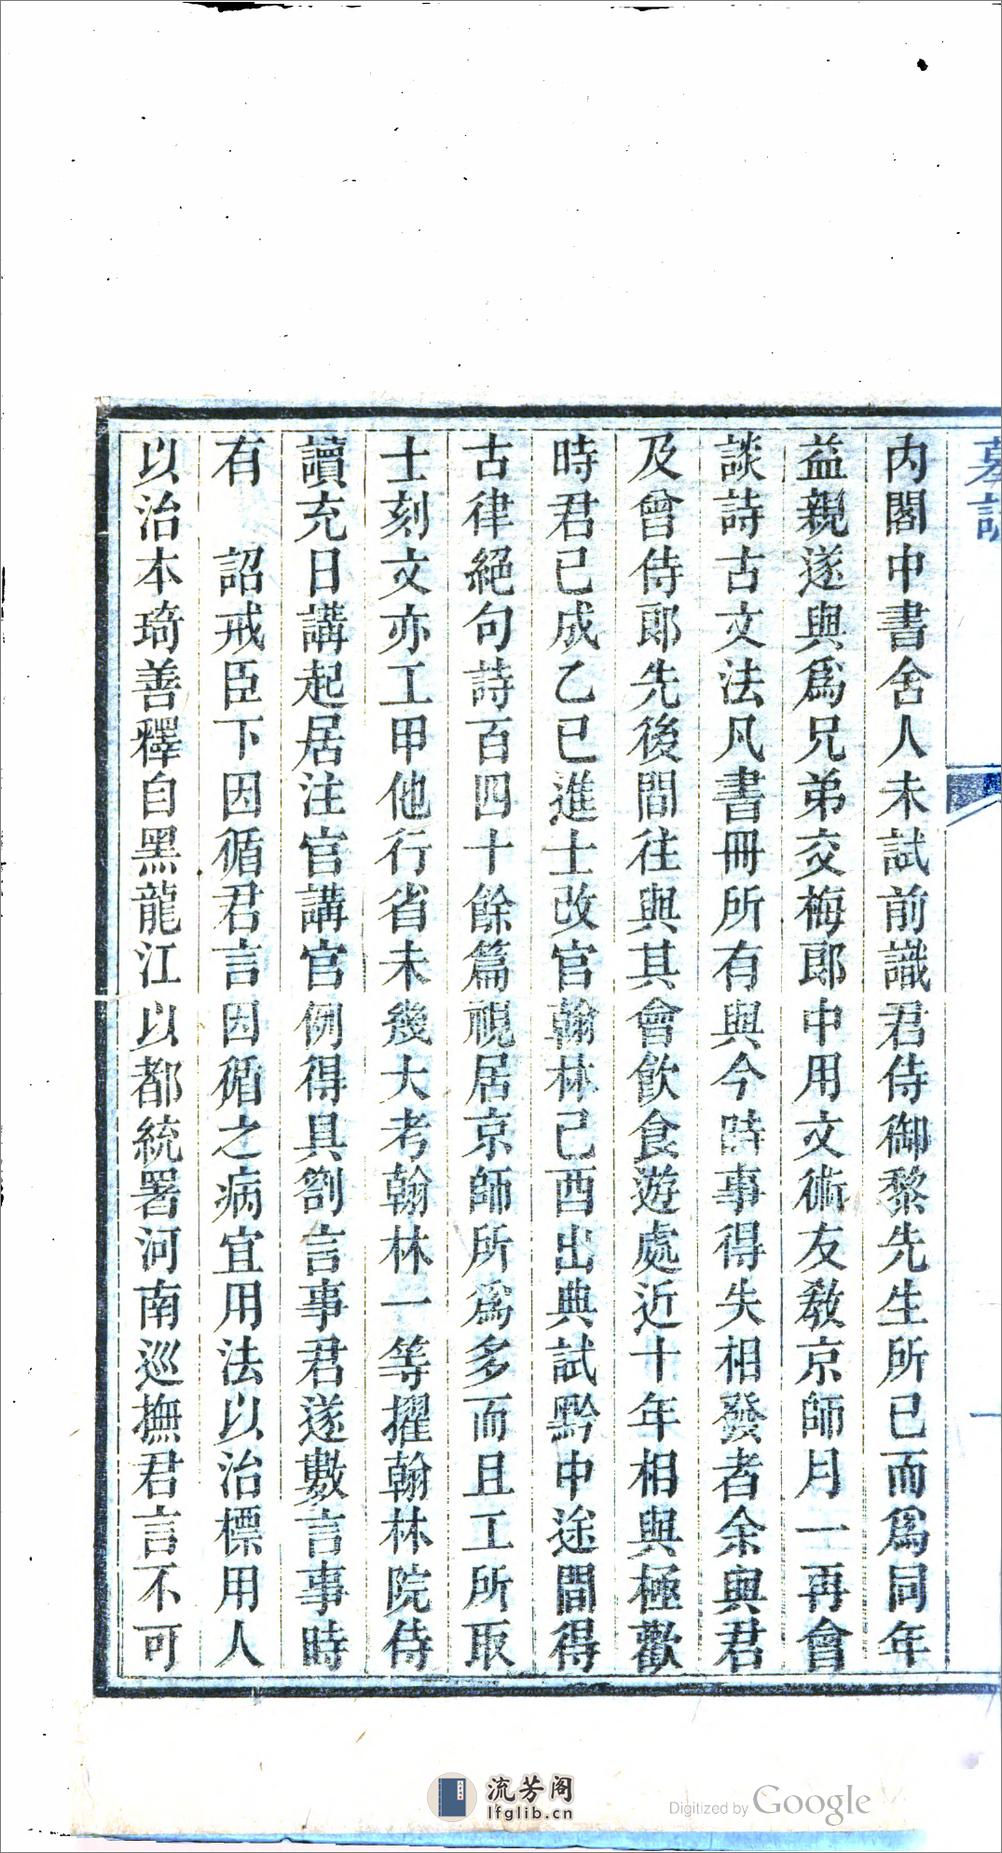 內閣中書舍人未試前識君侍御黎先生所已而爲同年
益親遂與爲兄弟交梅郎中用文術友教京師月一再會
談詩古文法凡書冊所有與今時事得失相發者余與君
及曾侍郎先後間往與其會飮食遊處近十年相與極歡
時君已成乙巳進士改官翰林己酉出典試黔中途間得
古律絕句詩百四十餘篇視居京師所爲多而且工所取
士刻文亦工甲他行省未幾大考翰林一等擢翰林院侍
讀充日講起居注官講官例得具劄言事君遂數言事時
有　詔戒臣下因循君言因循之病宜用法以治標用人
以治本琦善釋自黑龍江以都統署河南巡撫君言不可
流芳阁
lfglib.cn
Digitized by Google